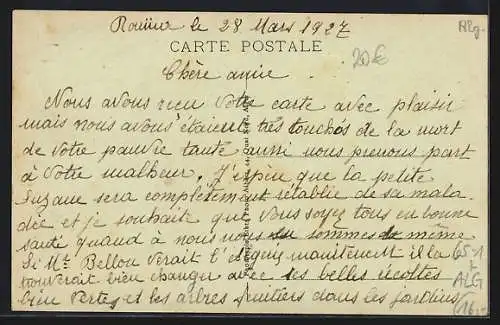 Rouïna le 28 Mars 1927
Alg.
CARTE POSTALE
20€
Chère amie
Nous avons reçu Votre carte avec plaisir
mais nous avons étaient très touchés de la mort
de Votre pauvre tante aussi nous prenons part
à Votre malheur. J'espère que la petite
Suzane sera complètement rétablie de sa mala
die et je souhaite que Vous soyez tous en bonne
santé quand à nous nous sommes de même
Si Mr Bellou Verait l' maintenent il la
trouverait bien changer avec ses belles récoltes
bien Vertes et les arbres fruitiers dans les jardins
ALG